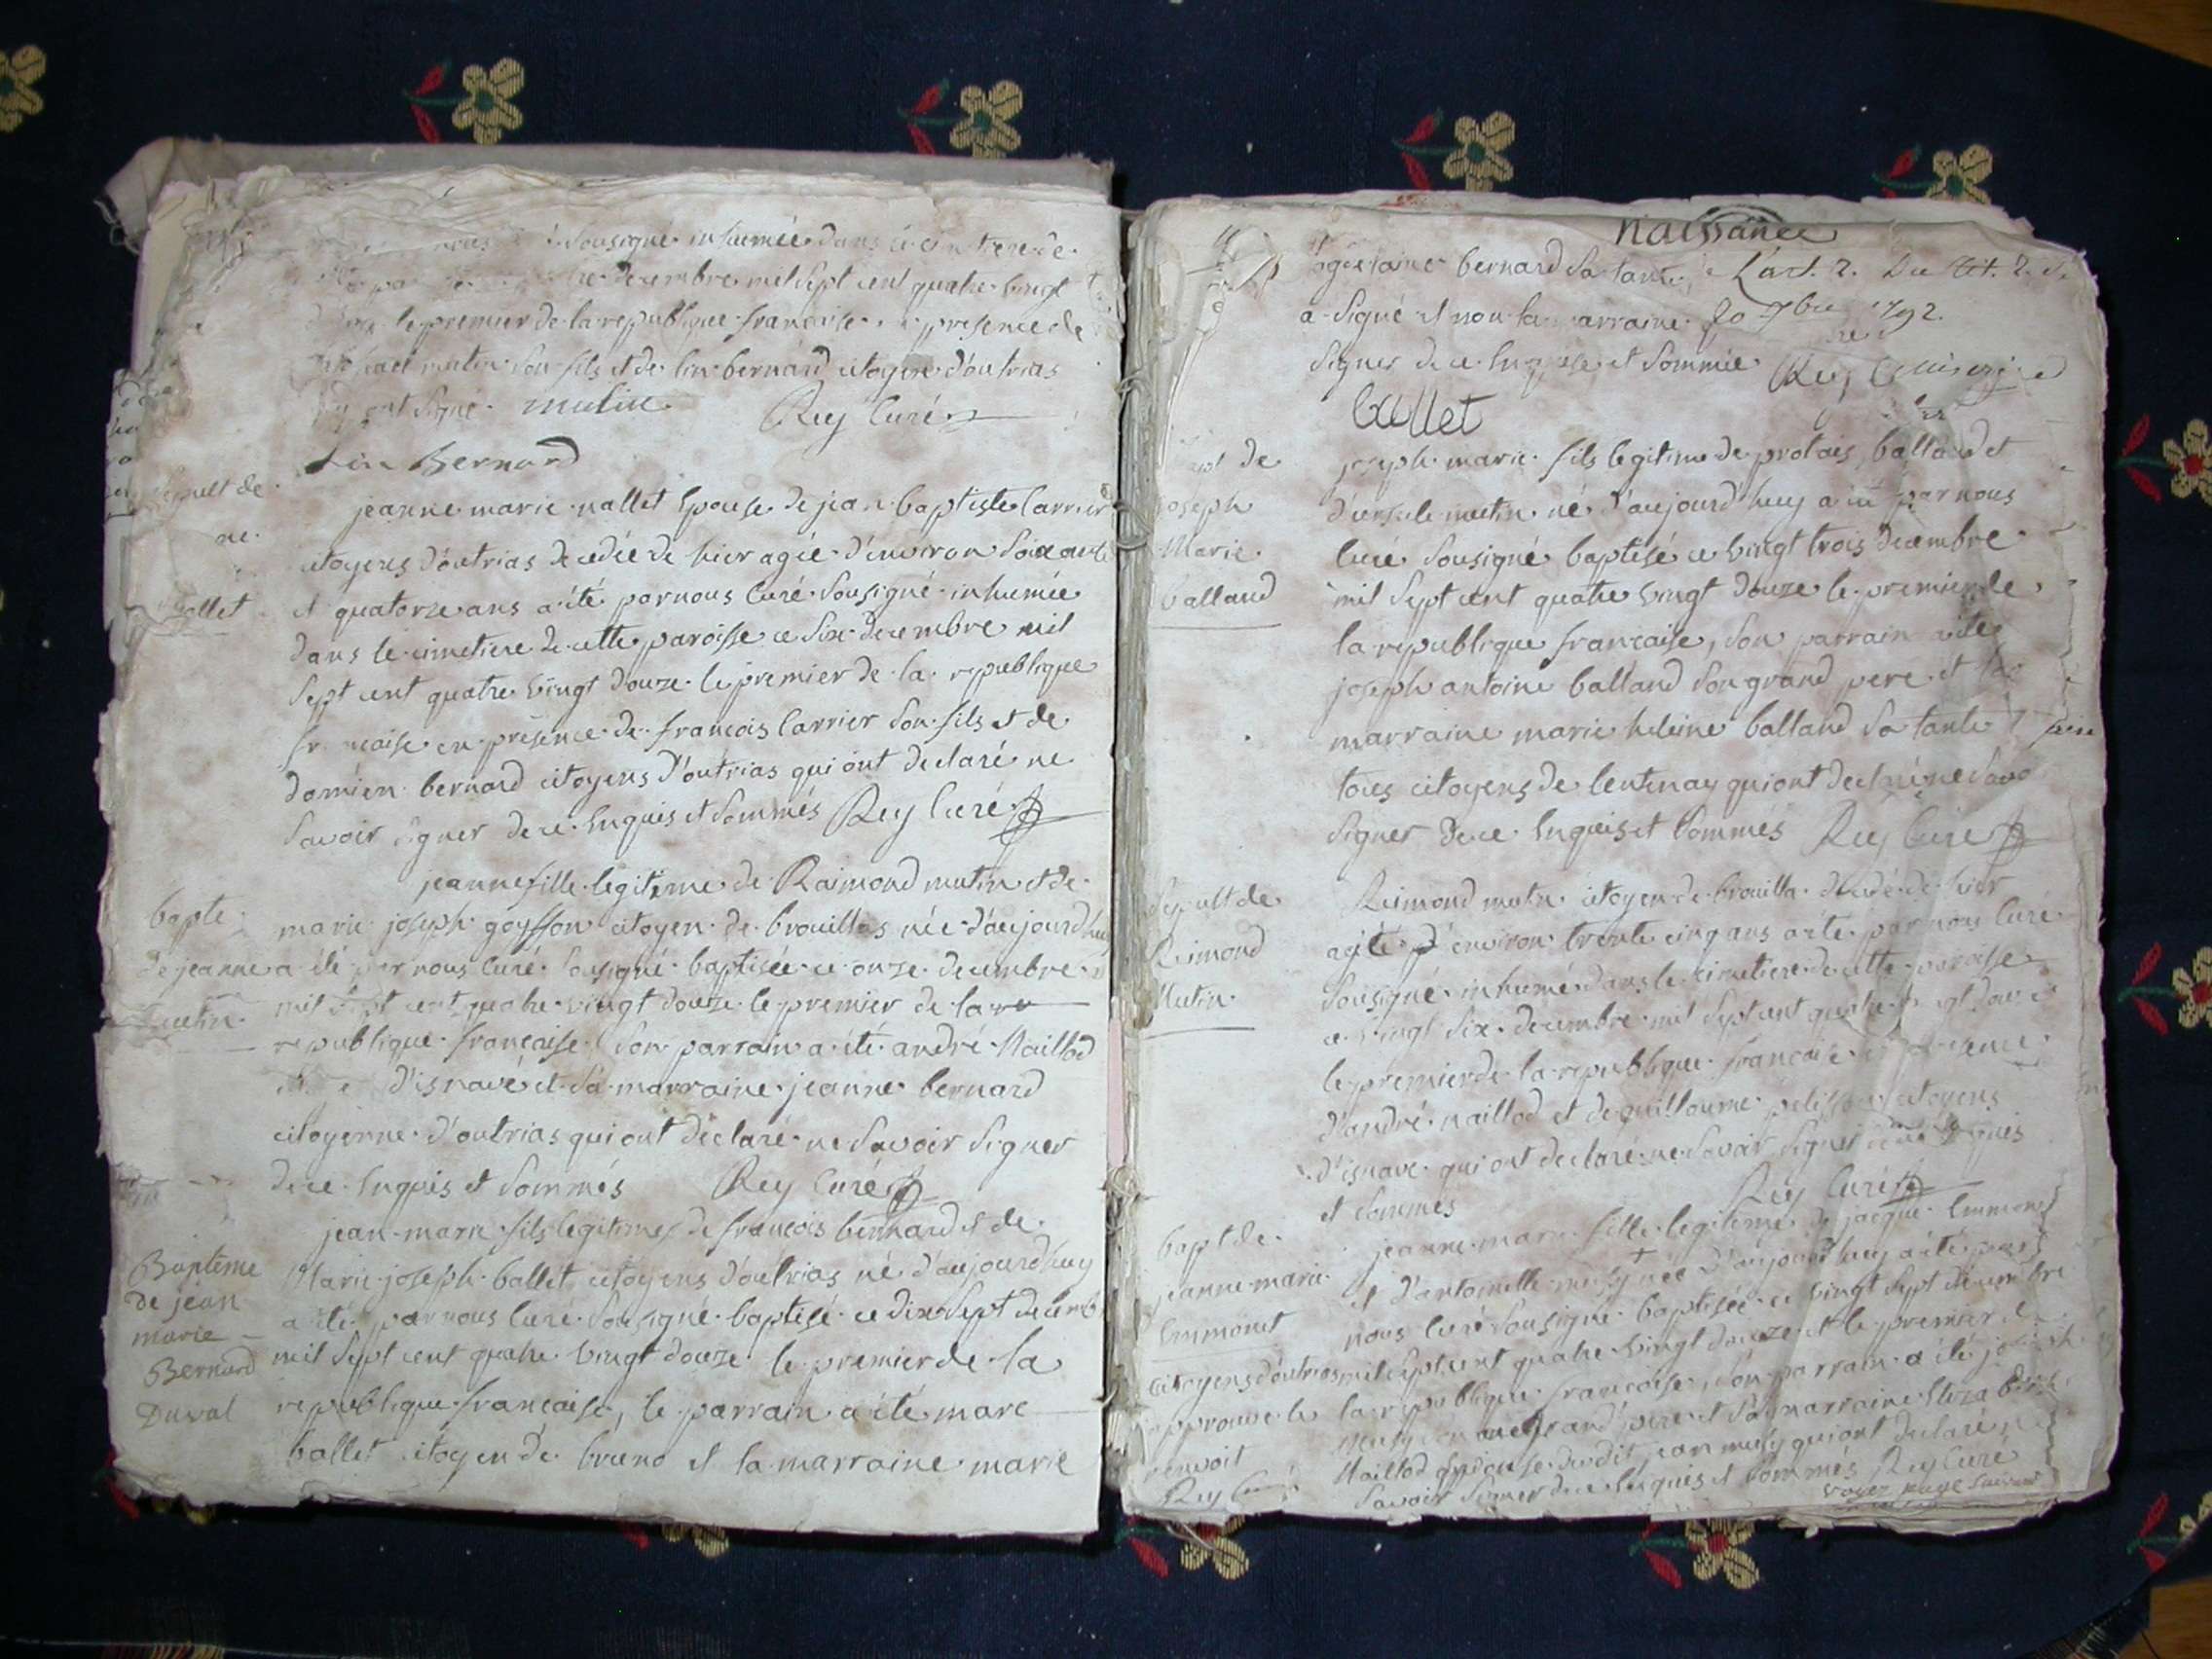 nous sousigné inhumée dans le cimetiere de
decembre mil sept cent quatre vingt
le premier de la republique francaise presence de
mutin son fils et de lin bernard citoyen d'outrias
ont signé mutin Rey Curé
Lin Bernard
sepult de
jeanne marie nallet Epouse de jean baptiste Carrier
ne
citoyens d'outrias decedée de hier agée d'environ soixante
nallet
et quatorze ans a été par nous Curé sousigné inhumée
dans le cimetiere de cette paroisse ce six decembre mil
sept cent quatre vingt douze le premier de la republique
francaise en présence de francois Carrier son fils et de
damien bernard citoyens d'outrias qui ont declaré ne
savoir signer de ce Enquis et sommés Rey Curé
jeanne fille legitime de Raimond mutin et de
bapte
marie joseph goyffon citoyen de brouillas née d'aujourd'huy
de jeanne
a été par nous Curé sousigné baptisée ce onze decembre
mutin
mil sept cent quatre vingt douze le premier de la re
republique francaise son parrain a été andré Maillod
d'isnave et sa marraine jeanne bernard
citoyenne d'outrias qui ont declaré ne savoir signer
de ce Enquis et sommés Rey Curé
jean marie fils legitime de francois bernard et de
Baptême
Marie joseph ballet citoyens d'outrias né d'aujourd'huy
de jean
a été par nous Curé sousigné baptisé ce dix sept decemb
marie
mil sept cent quatre vingt douze le premier de la
Bernard
Duval
republique francaise, le parrain a été marc
ballet citoyen de breno et la marraine marie
Naissance
bernard sa tante L'art. 2. Du tit. 2.
a signé et non la marraine 20 7bre 1792.
signer de ce Enquise et sommée Rey
ballet
bapt de
joseph marie fils legitime de protais balland et
joseph
d'ursule mutin né d'aujourd'huy a été par nous
Marie
Curé sousigné baptisé ce vingt trois decembre
balland
mil sept cent quatre vingt douze le premier de
la republique francaise, son parrain a été
joseph antoine balland son grand pere et sa
marraine marie heleine balland sa tante
tous citoyens de lentenay qui ont declaré ne savo
signer de ce Enquis et sommés Rey Curé
Sepult de
Raimond mutin citoyen de brouilla decedé de hier
Raimond
agé d'environ trente cinq ans a été par nous Curé
Mutin
sousigné inhumé dans le cimetiere de cette paroisse
ce vingt six decembre mil sept cent quatre vingt douze
le premier de la republique francaise en presence
d'andré maillod et de guillaume pelisson citoyens
d'isnave qui ont declaré ne savoir signer de ce Enquis
et sommés Rey Curé
bapt de
jeanne marie fille legitime de jacque Emmonet
jeanne marie
et d'antoinette musy née d'aujourd'huy a été par
Emmonet
nous Curé sousigné baptisée ce vingt sept decembre
citoyens d'outrias
mil sept cent quatre vingt douze et le premier de
approuve le
la republique francaise, son parrain a été joseph
renvoit
musy son grand pere et sa marraine Elizabeth
Rey Curé
Maillod Epouse dudit jean musy qui ont declaré ne
savoir signer de ce Enquis et sommés Rey Curé
voyez page suivant